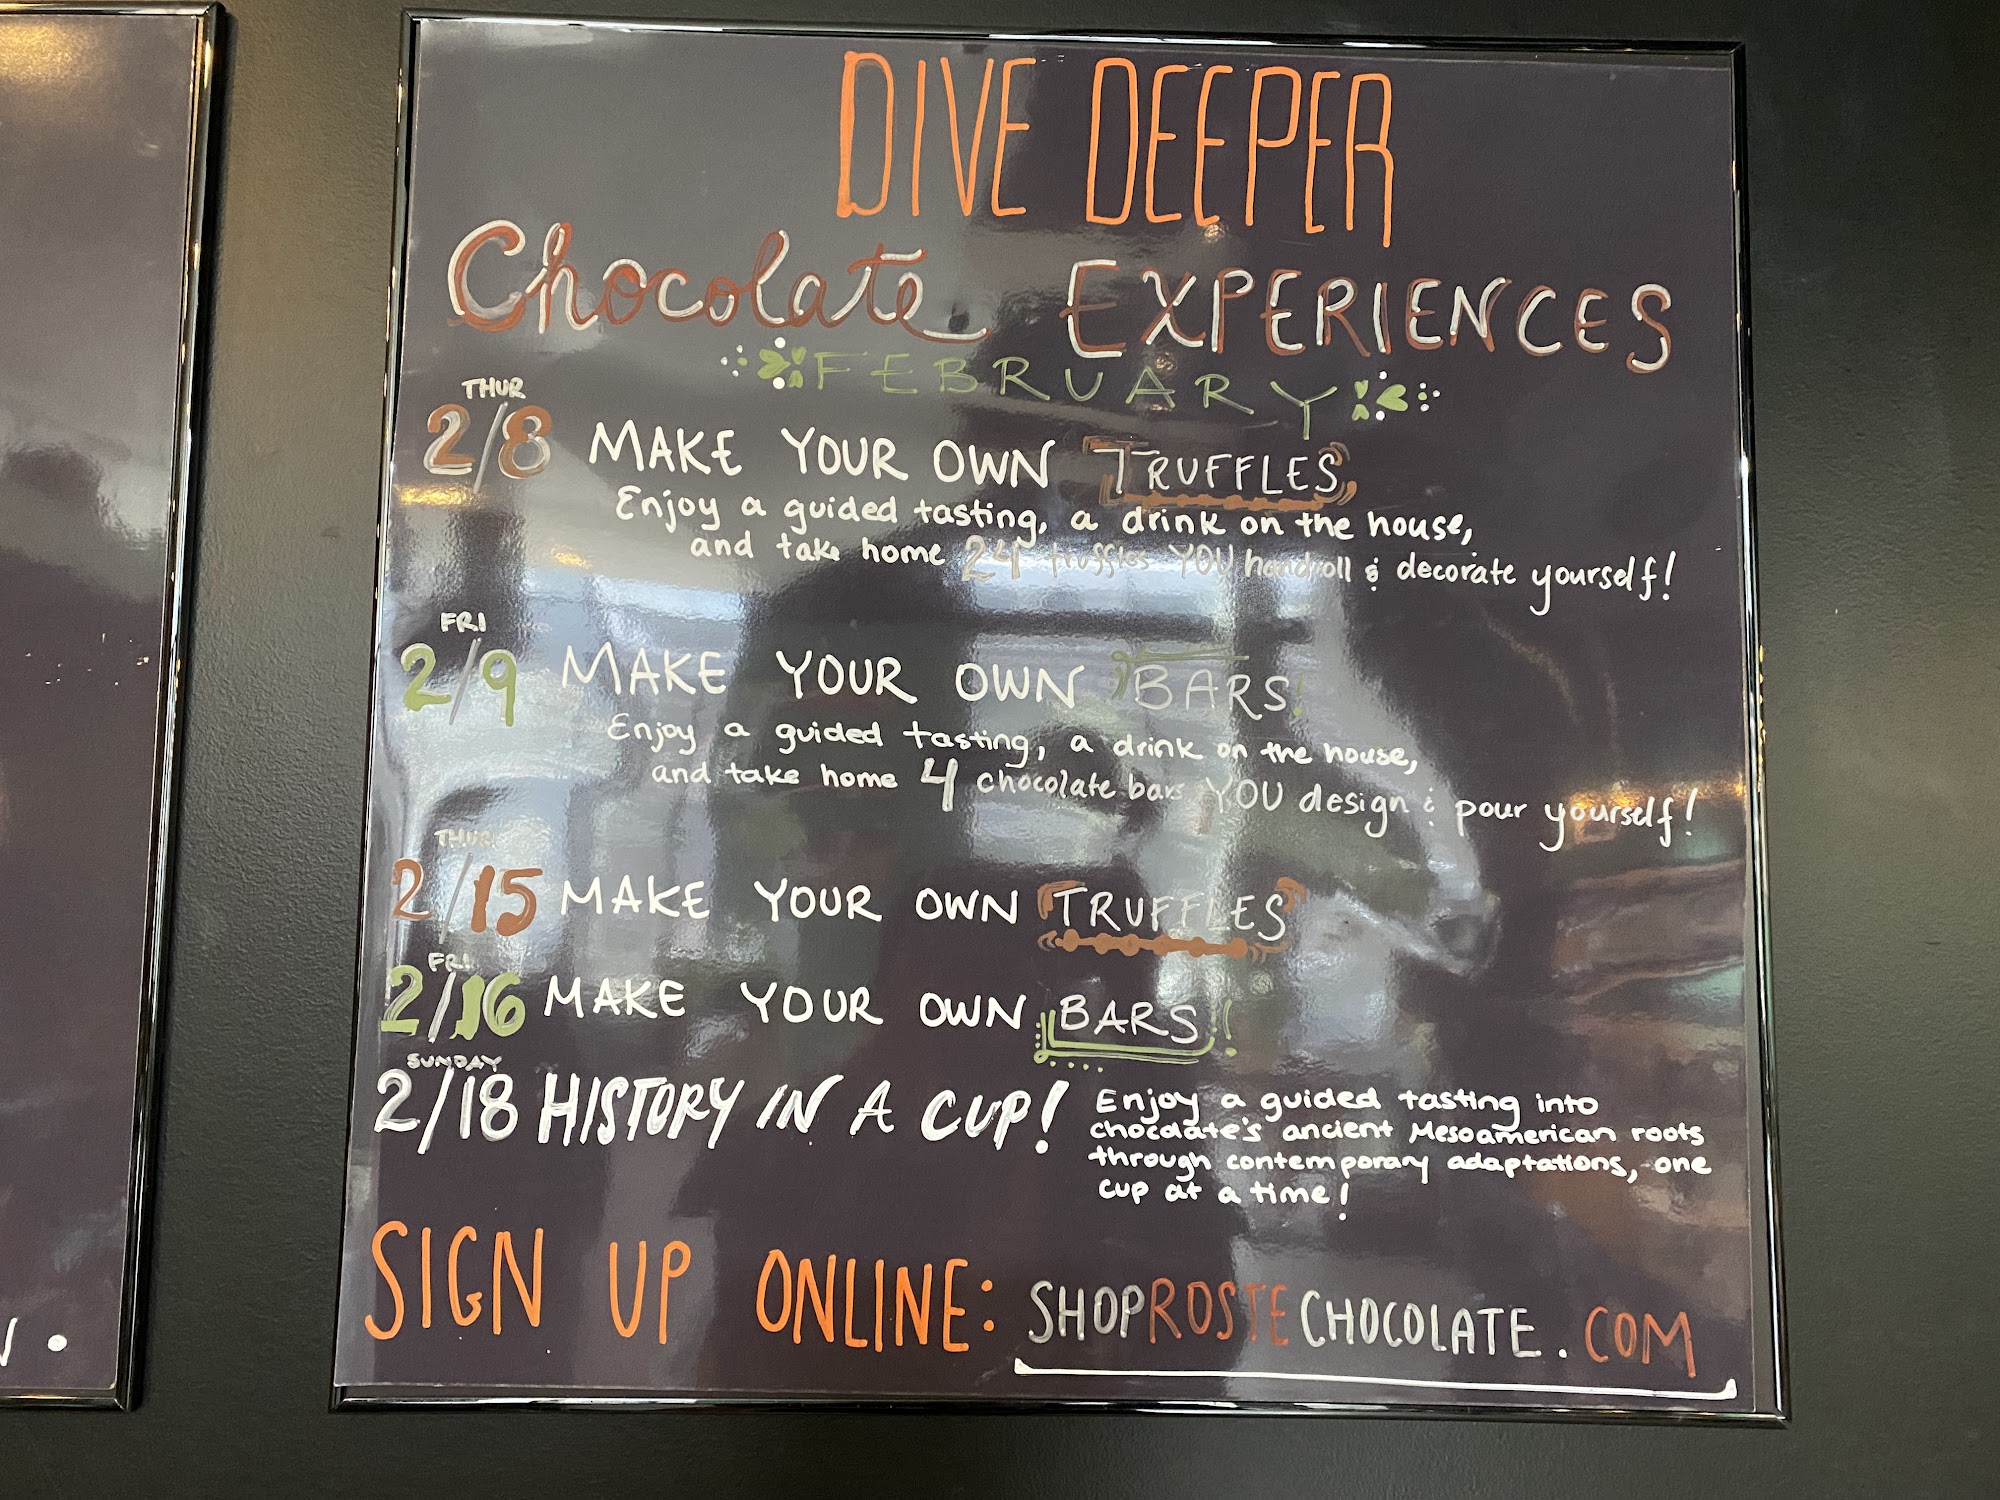 DIVE DEEPER
Chocolate EXPERIENCES
FEBRUARY
THUR
2/8 MAKE YOUR OWN TRUFFLES
Enjoy a guided tasting, a drink on the house,
and take home 24 truffles YOU handroll & decorate yourself!
FRI
2/9 MAKE YOUR OWN BARS!
Enjoy a guided tasting, a drink on the house,
and take home 4 chocolate bars YOU design & pour yourself!
THUR
2/15 MAKE YOUR OWN TRUFFLES
FRI
2/16 MAKE YOUR OWN BARS!
SUNDAY
2/18 HISTORY IN A CUP!
Enjoy a guided tasting into
chocolate's ancient Mesoamerican roots
through contemporary adaptations, one
cup at a time!
SIGN UP ONLINE: SHOPROSTECHOCOLATE.COM